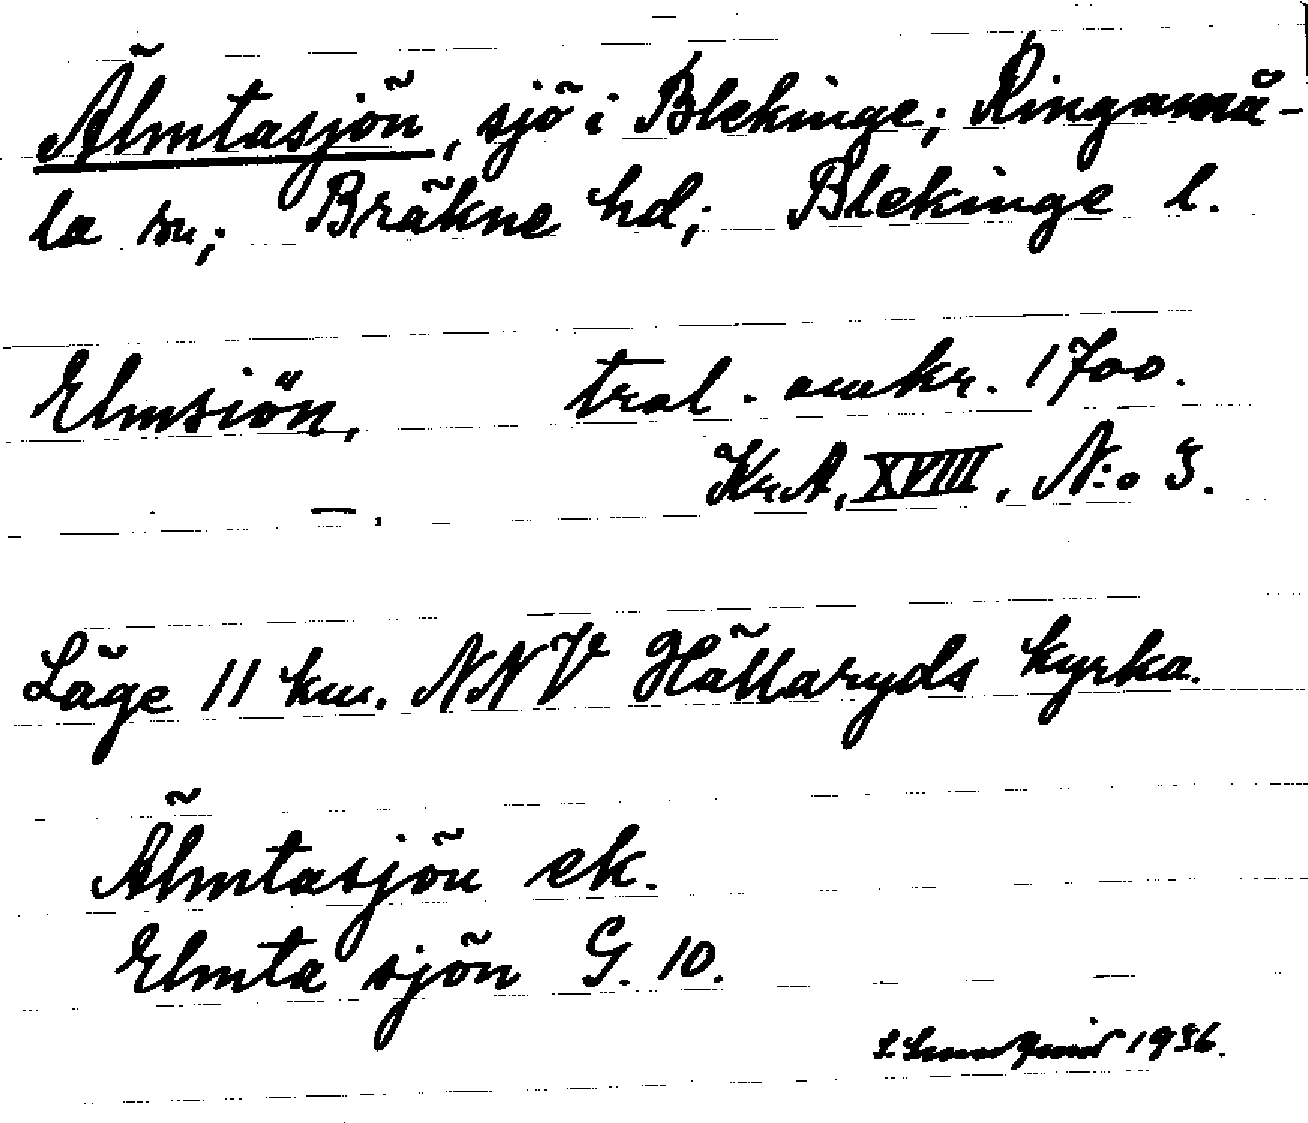 Älmtasjön, sjö i Blekinge; Ringamå-
la sn; Bräkne hd; Blekinge l.
Elmsiön, tral. omkr. 1700.
—, KrA, XVIII, N:o 3.
Läge 11 km. NNV Hällaryds kyrka.
Älmtasjön ek.
Elmta sjön G. 10.
1936.